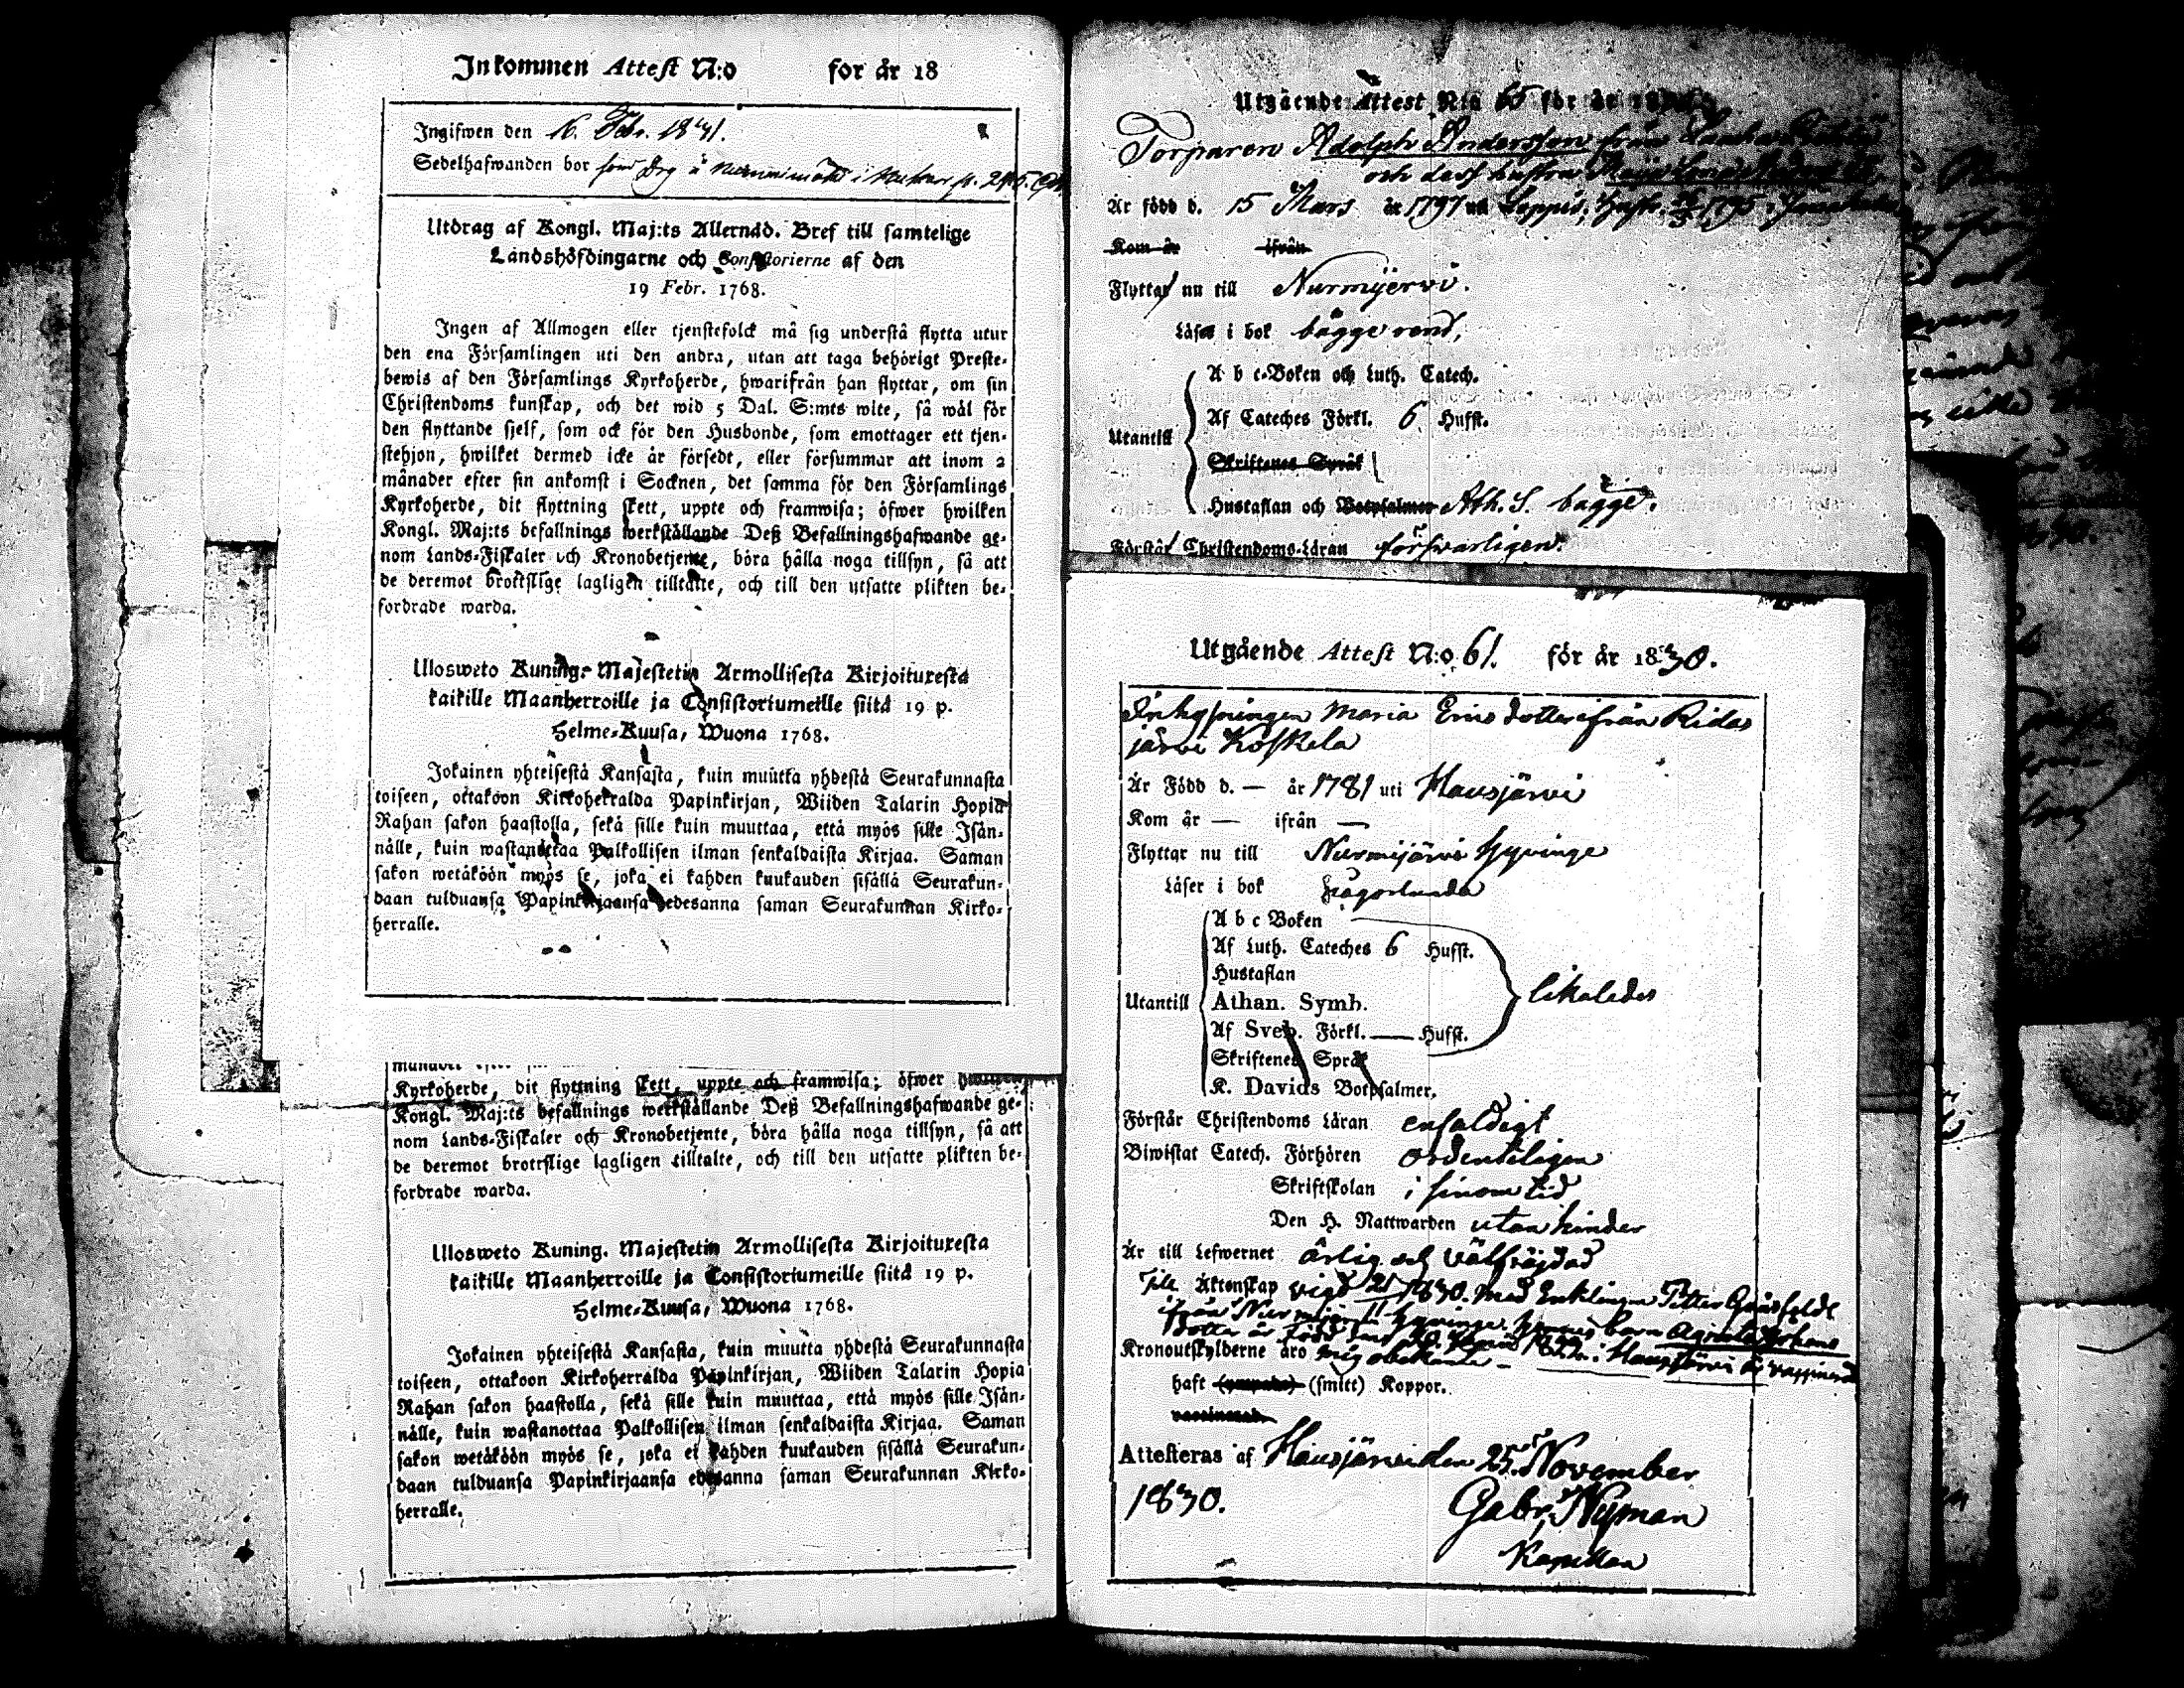 Inkommen Attest N:o for år 18
Ingifwen den 16. Febr. 1831.
Sedelhafwanden bor som Drg å i
Utdrag af Kongl. Maj:ts Allernåd. Bref till samtelige
Landshöfdingarne och Consistorierne af den
19 Febr. 1768.
Ingen af Allmogen eller tjenstefolck må sig understå flytta utur
den ena Församlingen uti den andra, utan att taga behörigt Preste-
bewis af den Församlings Kyrkoherde, hwarifrån han flyttar, om sin
Christendoms kunskap, och det wid 5 Dal. S:mts wite, så wäl för
den flyttande sjelf, som ock för den Husbonde, som emottager ett tjen-
stehjon, hwilket dermed icke är försedt, eller försummar att inom 2
månader efter sin ankomst i Socknen, det samma för den Församlings
Kyrkoherde, dit flyttning skett, uppte och framwisa; öfwer hwilken
Kongl. Maj:ts befallnings werkställande Deß Befallningshafwande ge-
nom Lands-Fiskaler och Kronobetjente, böra hålla noga tillsyn, så att
de deremot brottslige lagligen tilltalte, och till den utsatte plikten be-
fordrade warda.
Ulosweto Kuning. Majestetin Armollisesta Kirjoituxesta
kaikille Maanherroille ja Consistoriumeille siitä 19 p.
Helme-Kuusa, Wuona 1768.
Jokainen yhteisestä Kansasta, kuin muutta yhdestä Seurakunnasta
toiseen, ottakoon Kirkoherralda Papinkirjan, Wiiden Talarin Hopia
Rahan sakon haastolla, sekä sille kuin muuttaa, että myös sille Isän-
nälle, kuin wastanottaa Palkollisen ilman senkaldaista Kirjaa. Saman
sakon wetäköön myös se, joka ei kahden kuukauden sisällä Seurakun-
daan tulduansa Papinkirjaansa edesanna saman Seurakunnan Kirko-
herralle.
Kyrkoherde, dit flyttning skett, uppte och framwisa; öfwer
Kongl. Maj:ts befallnings werkställande Deß Befallningshafwande ge-
nom Lands-Fiskaler och Kronobetjente, böra hålla noga tillsyn, så att
de deremot brottslige lagligen tilltalte, och till den utsatte plikten be-
fordrade warda.
Ulosweto Kuning. Majestetin Armollisesta Kirjoituxesta
kaikille Maanherroille ja Consistoriumeille siitä 19 p.
Helme-Kuusa, Wuona 1768.
Jokainen yhteisestä Kansasta, kuin muutta yhdestä Seurakunnasta
toiseen, ottakoon Kirkoherralda Papinkirjan, Wiiden Talarin Hopia
Rahan sakon haastolla, sekä sille kuin muuttaa, että myös sille Isän-
nälle, kuin wastanottaa Palkollisen ilman senkaldaista Kirjaa. Saman
sakon wetäköön myös se, joka ei kahden kuukauden sisällä Seurakun-
daan tulduansa Papinkirjaansa edesanna saman Seurakunnan Kirko-
herralle.
Utgående Attest N:o 65 för år
Torparen Adolph Andersson från
och dess hustru
Är född d. 15 Mars år 1797 uti Loppis, hust. 1795,
Kom år ifrån
Flyttar nu till Nurmijervi.
Läser i bok bägge rent,
A b c-Boken och Luth. Catech.
Af Cateches Förkl. 6 Husst.
Utantill
Skriftenes Språk
Hustaflan och Botpsalmer Ath. S. bägge.
Förstår Christendoms-Läran försvarligen.
Utgående Attest N:o 61. för år 1830.
Inhysingen Maria Ericsdotter ifrån Ridas
järvi Koskela
Är Född d. — år 1781 uti Hausjärvi
Kom år — ifrån —
Flyttar nu till Nurmijärvi Hyvinge
Läser i bok någorlunda
A b c Boken
Af Luth. Cateches 6 Husst.
Hustaflan
Utantill Athan. Symb. likaledes
Af Sveb. Förkl. — Husst.
Skriftenes Språk
K. Davids Botpsalmer,
Förstår Christendoms Läran enfaldigt
Biwistat Catech. Förhören ordenteligen
Skriftskolan i sinom tid
Den H. Nattwarden utan hinder
Är till Lefwernet ärlig och välfräjdad
Till Äktenskap vigd 21/11 1830. med Enklingen Petter
ifrån Nurmijärvi Hyvinge. barn
dotter är född i Hausjärvi är vaccinerad
Kronoutskylderne äro mig obekante —
haft (ympade) (smitt) Koppor.
vaccinerad
Attesteras af Hausjärvi den 25. November
1830. Gabr. Nyman
Kapellan